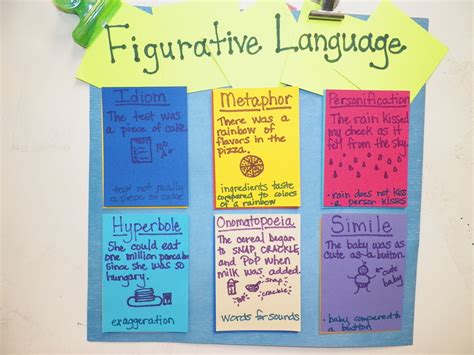 Figurative Language
Idiom
The test was
a piece of cake.
test not really
a piece of cake
Metaphor
There was a
rainbow of
flavors in the
pizza.
ingredients taste
compared to colors
of a rainbow
Personification
The rain kissed
my cheek as it
fell from the sky.
rain does not kiss
a person kisses
Hyperbole
She could eat
one million pancakes
since she was so
hungry.
exaggeration
Onomatopoeia
The cereal began
to SNAP, CRACKLE,
and POP when
milk was added.
snap
pop
crackle
words for sounds
Simile
The baby was as
cute as a button.
cute
baby
baby compared to
a button